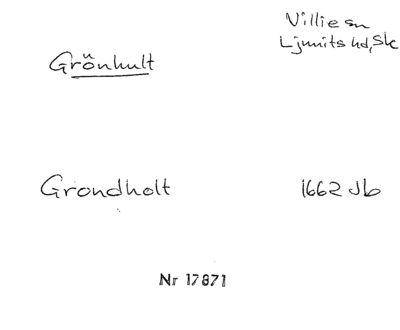 Villie sn
Ljunits hd, Sk
Grönhult
Grondholt
1662 Jb
Nr 17871